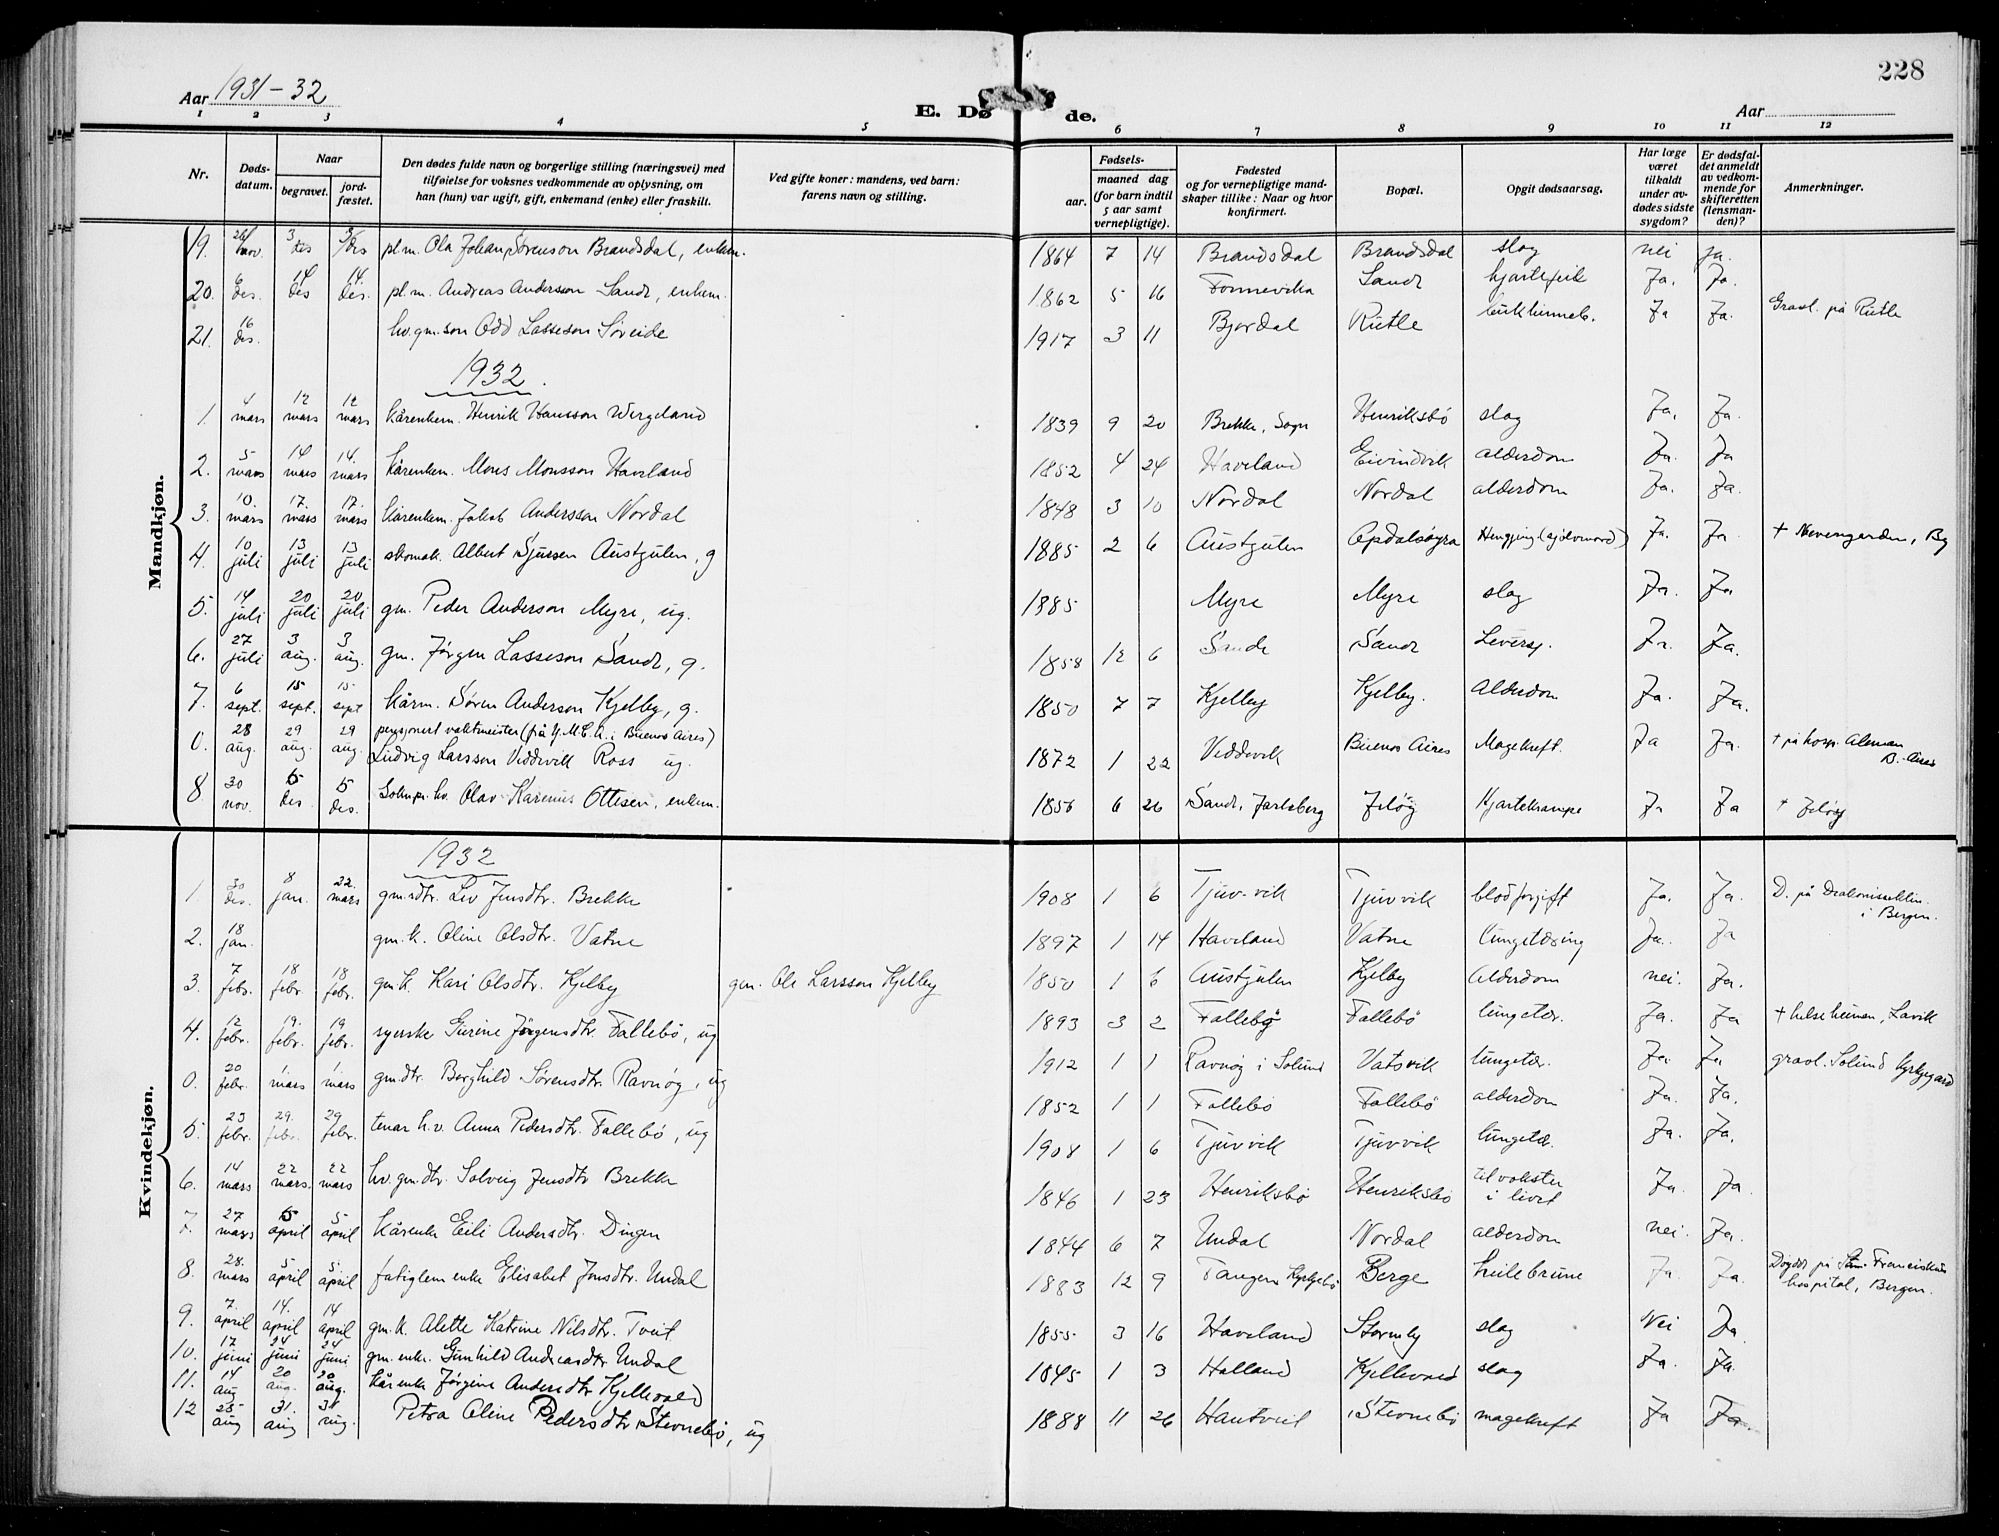 228
Aar 1931-32
E. Døde.
Aar
1 2 3 4 5 6 7 8 9 10 11 12
Nr. | Døds-datum. | Naar begravet. | jord-fæstet. | Den dødes fulde navn og borgerlige stilling (næringsvei) med tilføielse for voksnes vedkommende av oplysning, om han (hun) var ugift, gift, enkemand (enke) eller fraskilt. | Ved gifte koner: mandens, ved barn: farens navn og stilling. | Fødsels- aar. | maaned | dag (for barn indtil 5 aar samt vernepligtige). | Fødested og for vernepligtige mandskaper tillike: Naar og hvor konfirmert. | Bopæl. | Opgit dødsaarsag. | Har læge været tilkaldt under avdødes sidste sygdom? | Er dødsfaldet anmeldt av vedkommende for skifteretten (lensmanden)? | Anmerkninger.
Mandkjøn.
19. 26/nov. 3 des 3/des pl.m. Ola Johan Sørenson Brandsdal, enkem. 1864 7 14 Brandsdal Brandsdal slag nei ja.
20. 6 des. 14 des 14. des. pl.m. Andreas Anderson Sande, enkem. 1862 5 16 Sande Ja. Ja.
21. 16 des. hv. gm. son Odd Lasseson Søreide 1917 3 11 Bjordal Rutle bukhinneb. Ja Ja. Gravl. på Rutle
1932
1. 4 mars 12 mars 12 mars kårenkem. Henrik Hansson Wergeland 1839 9 20 Brekke, Sogn Henriksbø slag Ja. Ja.
2. 5 mars 14 mars 14. mars kårenkem. Mons Monsson Haveland 1852 4 24 Haveland Eivindvik alderdom Ja. Ja
3. 10 mars 17. mars 17. mars kårenkem. Jakob Andersson Nordal 1848 3 10 Nordal Nordal alderdom Ja. Ja.
4. 10 juli 13 juli 13 juli skomak. Albert Sjursen Austgulen, g 1885 2 6 Austgulen Opdalsøyra Hengjing (sjølvmord) Ja. Ja. † Nevengarden, Bg
5. 14 juli 20 juli 20 juli gm. Peder Anderson Myre, ug. 1885 Myre Myre slag Ja. Ja
6. 27 juli 3 aug. 3 aug. gm. Jørgen Lasseson Sande, g. 1858 12 6 Sande Sande Leversj. Ja. Ja.
7. 6 sept. 15 sept. 15 sept kårm. Søren Anderson Kjelby, g. 1850 7 7 Kjelby Kjelby. Alderdom Ja. Ja.
0. 28 aug. 29 aug. 29 aug. pensjonert vaktmeister (frå Y.M.C.A. i Buenos Aires)
Ludvig Larsson Viddevik Ross ug. 1872 1 22 Viddevik Buenos Aires Magekreft. Ja Ja. † på hosp. Aleman B.-Aires
8 30 nov. 5 des. 5 des. Soknpr. hv. Olav Karenius Ottesen, enkem. 1856 6 26 Sande, Jarlsberg Jeløy Hjartekrampe Ja Ja † Jeløy
Kvindekjøn.
1932
1. 30 des. 8 jan. 22. mars gm. dtr. Liv Jensdtr. Brekke 1908 1 6 Tjuvvik Tjuvvik blodforgift Ja. Ja. D. på Diakonisseklin. i Bergen.
2. 18 jan. gm. k. Oline Olsdtr. Vatne 1897 1 14 Haveland Vatne lungetæring Ja. Ja
3. 7 febr. 18 febr. 18 febr. gm. k. Kari Olsdtr. Kjelby gm. Ole Larsson Kjelby 1850 1 6 Austgulen Kjelby Alderdom nei. Ja.
4. 12 febr. 19. febr. 19 febr. syerske Gurine Jørgensdtr. Fallebø, ug 1893 3 2 Fallebø Fallebø lungetær. Ja. Ja † helseheimen, Lavik
0. 20 febr. 1 mars 1 mars gm dtr. Berghild Sørensdtr. Ravnøy, ug 1912 1 1 Ravnøy i Solund Vatsvik lungetær. Ja. Ja gravl. Solund kyrkjegard
5. 23 febr. 29. febr. 29 febr. tenar h.v. Anna Pedersdtr. Fallebø, ug 1852 1 1 Fallebø Fallebø alderdom Ja. Ja.
6. 14 mars 22 mars. 22 mars hv. gm. dtr. Solveig Jensdtr. Brekke 1908 1 6 Tjuvvik Tjuvvik lungetæ. Ja. Ja.
7. 27 mars 5 april 5 april kårenke Eili Andersdtr. Dingen 1846 1 23 Henriksbø Henriksbø tilvokster i livet Ja. Ja.
8. 28. mars 5 april 5 april fatiglem enke Elisabet Jensdtr. Undal 1844 6 7 Undal Nordal alderdom nei. Ja.
9. 7. april 14. april 14 april gm. k. Alette Katrine Nilsdtr. Tveit 1883 12 9 Tangen Kyrkjebø Berge heilebrune Ja. Ja. Døydde på Franciskus hospital, Bergen.
10. 17 juni 24 juni 24 juni gm. enke. Gunhild Andreasdtr Undal 1855 3 16 Haveland slag Nei Ja
11. 14 aug 20 aug. 20 aug. kårenke Jørgine Andersdtr Kjellevold 1845 1 3 Holland Kjellevold slag Ja. Ja.
12 25 aug 31. aug 31 aug. Petra Oline Pedersdtr Stevnebø, ug 1888 11 26 Hantveit Stevnebø magekreft Ja Ja.